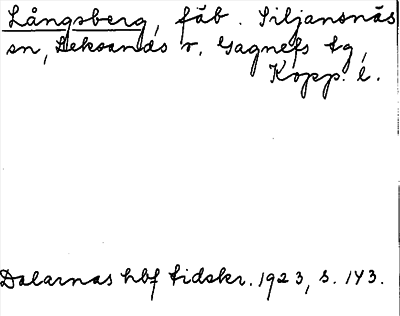 Långsberg, fäb. Siljansnäs
sn, Leksands o. Gagnefs tg,
Kopp. l.
Dalarnas hbf tidskr. 1923, s. 143.